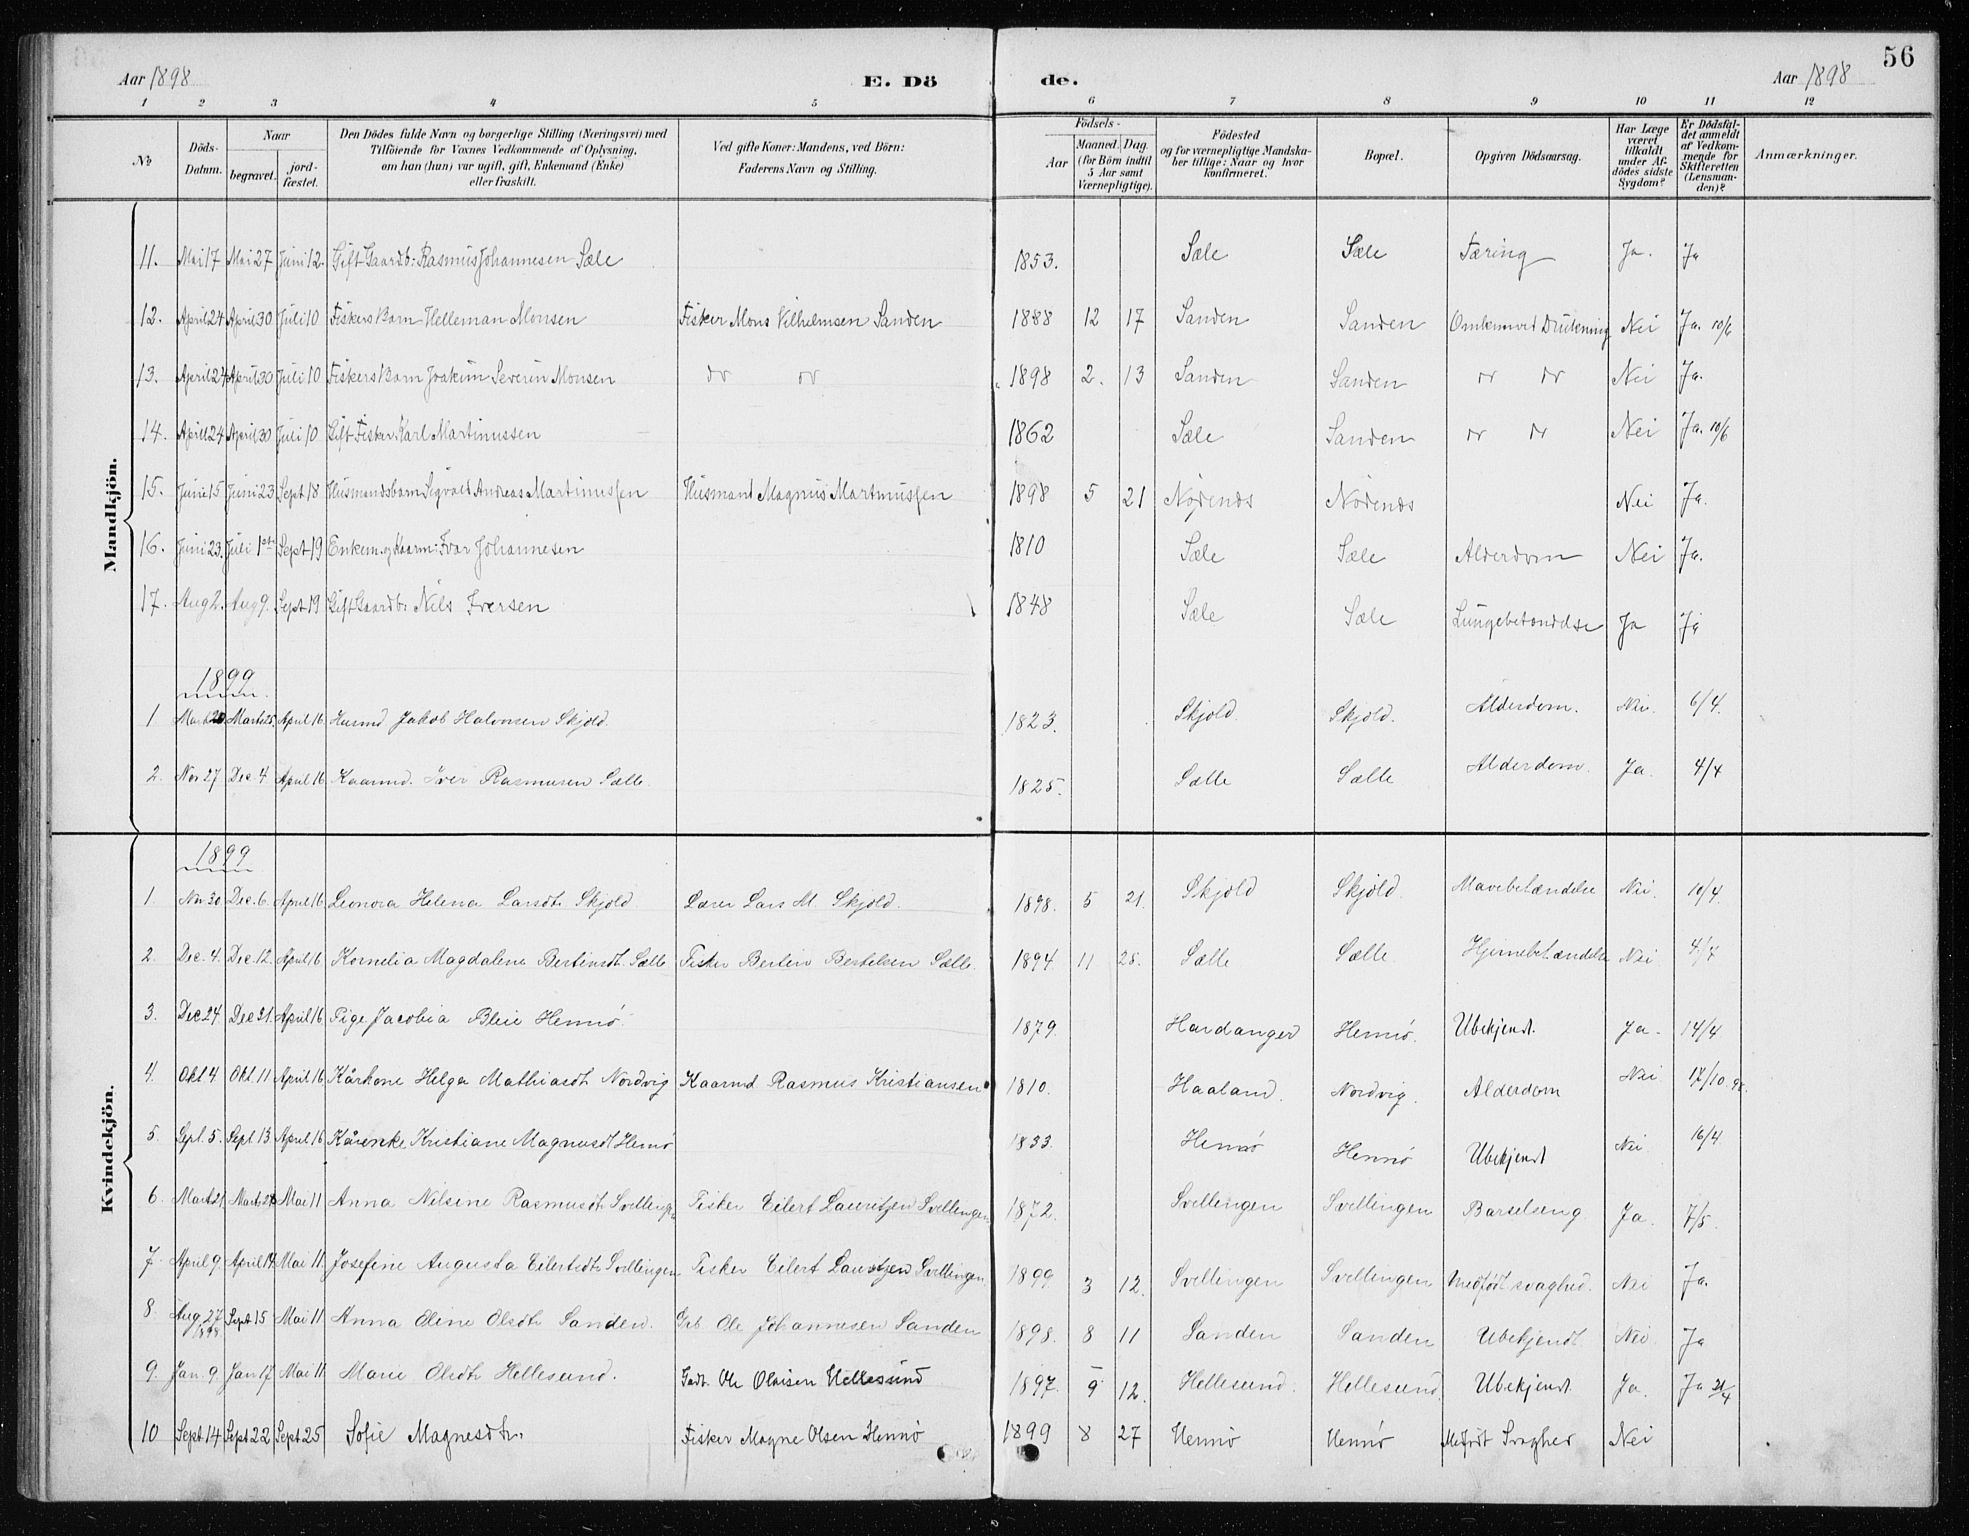 56
Aar 1898 E. Dö de. Aar 1898
1 2 3 4 5 6 7 8 9 10 11 12
No
Döds-Datum.
Naar
begravet.
jord-fæstet.
Den Dödes fulde Navn og borgerlige Stilling (Næringsvei) med
Tilföiende for Voxnes Vedkommende af Oplysning,
om han (hun) var ugift, gift, Enkemand (Enke)
eller fraskilt.
Ved gifte Koner: Mandens, ved Börn:
Faderens Navn og Stilling.
Födsels-
Aar
Maaned. Dag.
(for Börn indtil
5 Aar samt
Værnepligtige).
Födested
og for værnepligtige Mandska-
ber tillige: Naar og hvor
konfirmeret.
Bopæl.
Opgiven Dödsaarsag.
Har Læge
været
tilkaldt
under Af-
dödes sidste
Sygdom?
Er Dödsfal-
det anmeldt
af Vedkom-
mende for
Skifteretten
(Lensman-
den)?
Anmærkninger.
Mandkjön.
11. Mai 17 Mai 27 Juni 12. Gift Gaardb: Rasmus Johannesen Sæle 1853. Sæle Sæle Tæring Ja. Ja
12. April 24 April 30 Juli 10 Fiskers Barn Helleman Monsen Fisker Mons Vilhelmsen Sanden 1888 12 17 Sanden Sanden Omkom ved Drukning Nei Ja. 10/6
13. April 24 April 30 Juli 10 Fiskers Barn Joakim Severin Monsen do do 1898 2. 13 Sanden Sanden do do Nei Ja.
14. April 24 April 30 Juli 10 Gift Fisker Karl Martinussen 1862 Sæle Sanden do do Nei Ja. 10/6
15. Juni 15 Juni 23 Sept 18 Husmandsbarn Sigvald Andreas Martinussen Husmand Magnus Martinussen 1898 5 21 Nødenæs Nødenæs Nei Ja.
16. Juni 23. Juli 1ste Sept 19 Enkem. og Kaarm: Ivar Johannesen 1810 Sæle Sæle Alderdom Nei Ja.
17. Aug 2. Aug 9. Sept 19 Gift Gaardb: Nils Iversen 1848 Sæle Sæle Lungebetændelse Ja Ja
1899
1 Marts Marts 25. April 16 Husmd Jakob Halvorsen Skjold. 1823. Skjold. Skjold. Alderdom. Nei. 6/4.
2. Nov 27 Dec. 4 April 16 Kaarmd. Iver Rasmusen Sælle. 1825. Sælle Sælle Alderdom. Ja. 4/4
Kvindekjön.
1899
1. Nov 30 Dec. 6. April 16 Leonora Helena Larsdtr Skjold Lærer Lars M. Skjold. 1898. 5 21. Skjold Skjold. Mavebetændelse Nei. 10/4.
2. Dec. 4. Dec. 12. April 16 Kornelia Magdalene Bertinsdt. Sælle Fisker Bertin Bertelsen Sælle. 1894. 11 25. Sælle Sælle Hjernebetændelse Nei 4/4
3. Dec 24 Dec 31. April 16 Pige Jacobia Bleie Hennø. 1879. Hardanger Hennø. Ubekjendt. Ja. 14/4
4. Okt 4 Okt. 11 April 16 Kårkone Helga Mathiasdt Nordvig Kaarmd Rasmus Kristiansen 1810. Haaland. Nordvig. Alderdom Nei 17/10 98.
5. Sept. 5. Sept. 13 April 16 Kårenke Kristiane Magnusdt Hennø 1833. Hennø Hennø Ubekjendt Nei 16/4.
6. Marts 21 Marts 28 Mai 11 Anna Nilsine Rasmusdt Svellingen Fisker Eilert Lauritzen Svellingen 1872. Svellingen Svellingen Barselseng. Ja. 7/5.
7. April 9. April 14. Mai 11. Josefine Augusta Eilertsdt Svellingen Fisker Eilert Lauritzen Svellingen. 1899 3 12. Svellingen Svellingen Medfødt svaghed. Nei Ja.
8. Aug. 27 1898. Sept 15 Mai 11 Anna Oline Olsdtr Sanden. Grb Ole Johannesen Sanden 1898. 8 11 Sanden Sanden Ubekjendt. Nei. Ja
9. Jan. 9. Jan 17 Mai 11 Marie Olsdtr Hellesund. Gadb. Ole Olaisen Hellesund 1897. 9 12. Hellesund. Hellesund. Ubekjendt Ja.
10 Sept. 14 Sept 22 Sept 25 Sofie Magnesdtr. Fisker Magne Olsen Hennø 1899 8 27 Hennø Hennø Medfødt Svaghed Nei